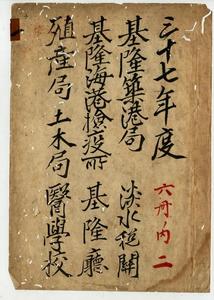 三十七年度
基隆築港局　淡水稅關
基隆海港檢疫所　基隆廳
殖產局　土木局　醫學校
六冊ノ內　二